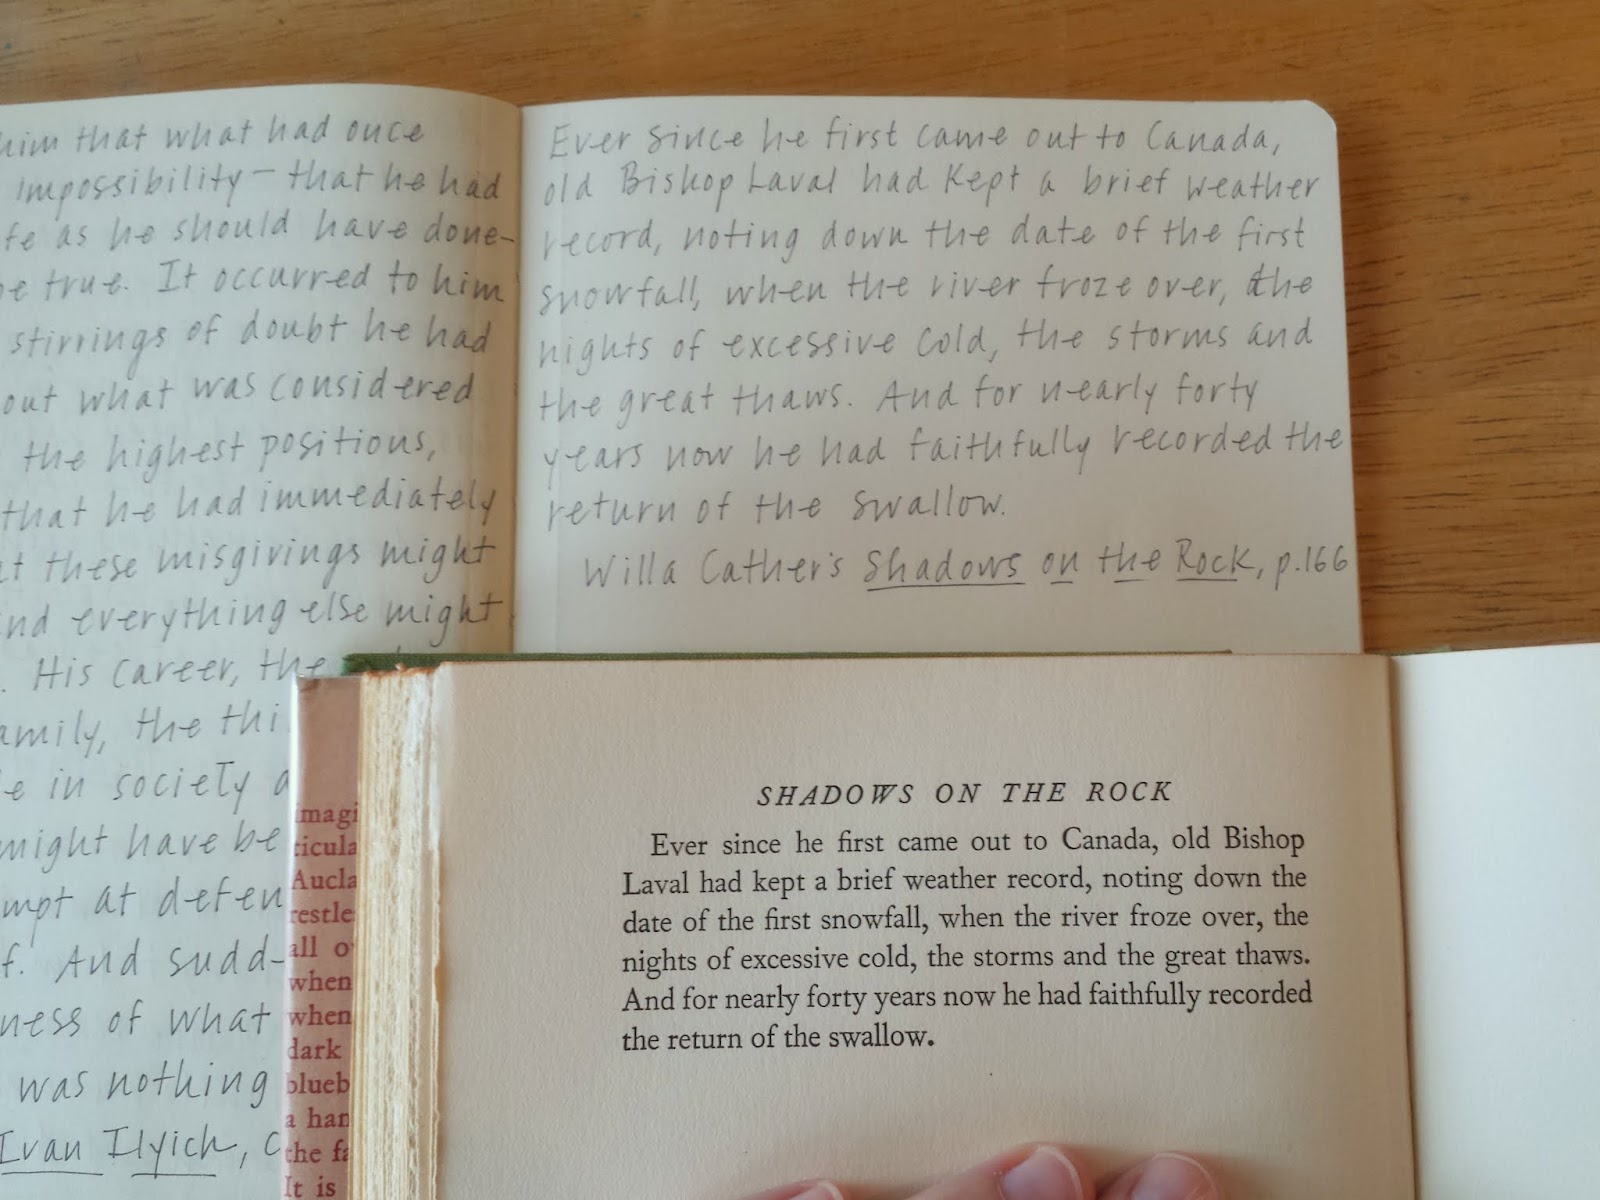 him that what had once
impossibility - that he had
fe as he should have done-
be true. It occurred to him
stirrings of doubt he had
out what was considered
the highest positions,
that he had immediately
at these misgivings might
and everything else might
. His career, the
amily, the thi
e in society a
might have be
mpt at defen
f. And sudd-
ness of what
was nothing
Ivan Ilyich, C
Ever since he first came out to Canada,
old Biskop Laval had kept a brief weather
record, noting down the date of the first
snowfall, when the river froze over, the
nights of excessive cold, the storms and
the great thaws. And for nearly forty
years now he had faithfully recorded the
return of the swallow.
Willa Cather's Shadows on the Rock, p.166
imagi
ticula
Aucla
restle
all o
when
when
dark
blueb
a han
the fa
It is
SHADOWS ON THE ROCK
Ever since he first came out to Canada, old Bishop
Laval had kept a brief weather record, noting down the
date of the first snowfall, when the river froze over, the
nights of excessive cold, the storms and the great thaws.
And for nearly forty years now he had faithfully recorded
the return of the swallow.